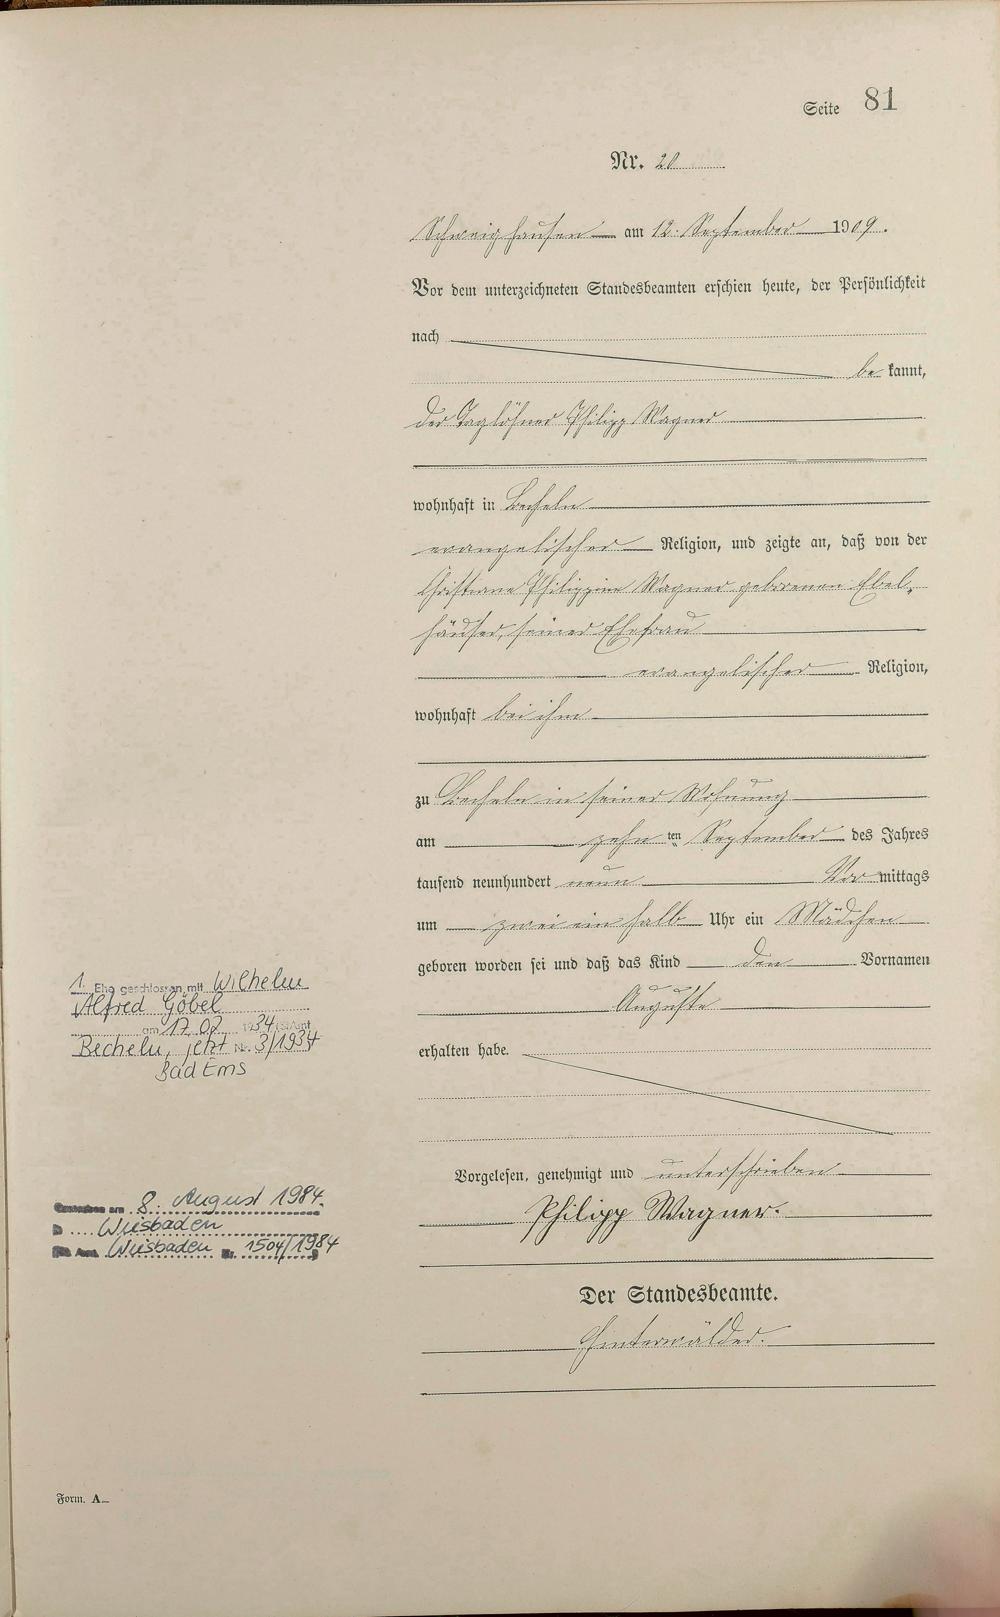 Seite 81
Nr. 20
Schweighausen am 12. September 1909.
Vor dem unterzeichneten Standesbeamten erschien heute, der Persönlichkeit
nach
be kannt,
der Taglöhner Philipp Wagner
wohnhaft in Becheln
evangelischer Religion, und zeigte an, daß von der
Christiane Philippine Wagner geborenen Ebel-
häuser, seiner Ehefrau
evangelischer Religion,
wohnhaft bei ihm
zu Becheln in seiner Wohnung
am zehn ten September des Jahres
tausend neunhundert neun Vor mittags
um zwei ein halb Uhr ein Mädchen
geboren worden sei und daß das Kind den Vornamen
Auguste
erhalten habe.
Vorgelesen, genehmigt und unterschrieben
Philipp Wagner.
Der Standesbeamte.
Hinterwälder.
1. Ehe geschlossen mit Wilhelm
Alfred Göbel
am 17.02. 1934 (St.Amt
Becheln, jetzt Nr. 3/1934
Bad Ems
Gestorben am 8. August 1984.
in Wiesbaden
Wiesbaden Nr. 1504/1984
Form. A.